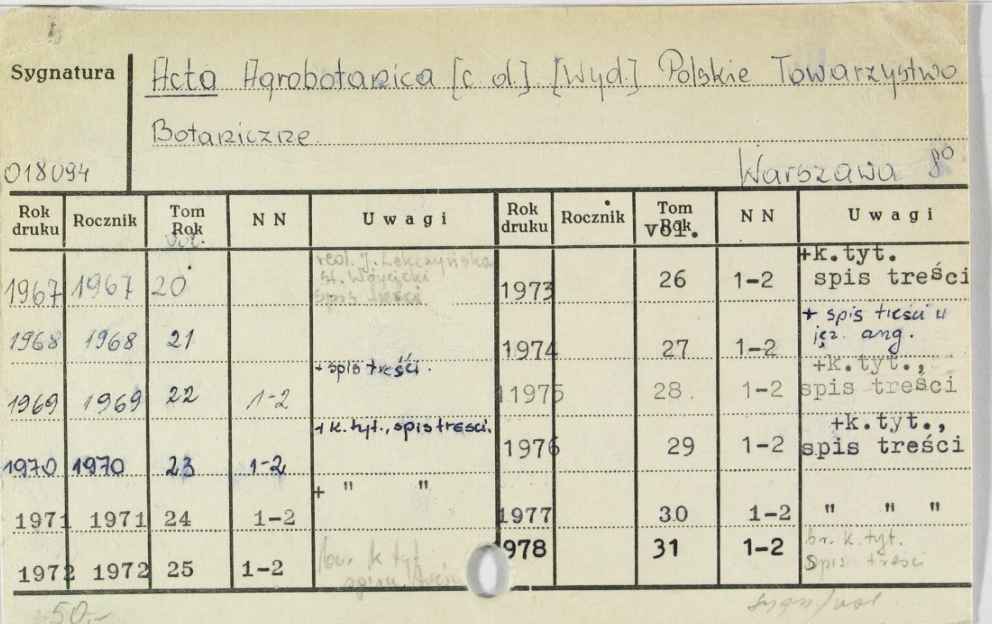 Sygnatura
Acta Agrobotanica [c d.]. [Wyd.] Polskie Towarzystwo
Botaniczne
018094
Warszawa 8º
Rok druku Rocznik Tom Rok vol. NN Uwagi
1967 1967 20 red. J. Lekczyńska St. Wóycicki spis treści
1968 1968 21
1969 1969 22 1-2 + spis treści.
1970 1970 23 1-2 + k. tyt., spis treści.
1971 1971 24 1-2 + " "
1972 1972 25 1-2 br. k tyt
Rok druku Rocznik Tom Rok vol. NN Uwagi
1973 26 1-2 +k.tyt. spis treści
1974 27 1-2 + spis treści w jęz. ang.
1975 28. 1-2 +k.tyt., spis treści
1976 29 1-2 +k.tyt., spis treści
1977 30 1-2 " " "
1978 31 1-2 br. k. tyt. spis treści
50,-